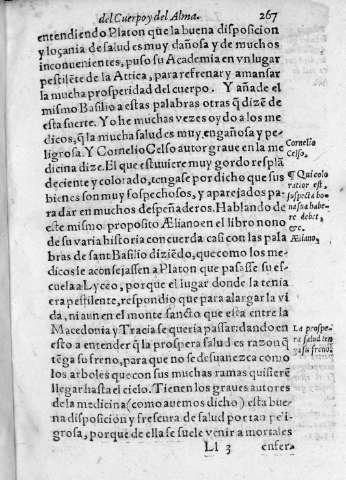 del Cuerpo y del Alma. 267
entendiendo Platon que la buena disposicion
y loçania de salud es muy dañosa y de muchos
inconuenientes, puso su Academia en vn lugar
pestilẽte de la Attica, para refrenar y amansar
la mucha prosperidad del cuerpo. Y añade el
mismo Basilio a estas palabras otras q̃ dizẽ de
esta suerte. Yo he muchas vezes oydo a los me
dicos, q̃ la mucha salud es muy engañosa y pe-
ligrosa. Y Cornelio Celso autor graue en la me
dicina dize. El que estuuiere muy gordo resplã
deciente y colorado, tengase por dicho que sus
bienes son muy sospechosos, y aparejados pa
ra dar en muchos despeñaderos. Hablando de
este mismo proposito AEliano en el libro nono
de su varia historia concuerda casi con las pala
bras de sant Basilio diziẽdo, que como los me-
dicos le aconsejassen a Platon que passasse su es-
cuela a Lyceo, porque el lugar donde la tenia
era pestilente, respondio que para alargar la vi
da, ni aun en el monte sancto que esta entre la
Macedonia y Tracia se queria passar: dando en
esto a entender q̃ la prospera salud es razon q̃
tẽga su freno, para que no se desuanezca como
los arboles que con sus muchas ramas quisierẽ
llegar hasta el cielo. Tienen los graues autores
de la medicina (como auemos dicho) esta bue-
na disposicion y frescura de salud por tan peli-
grosa, porque de ella se suele venir a mortales
Ll 3 enfer-
Cornelio
Celso.
¶ Qui colo
ratior est,
suspecta bo
na sua habe-
re debet,
&c.
AEliano,
La prospe-
ra salud ten
ga su freno.